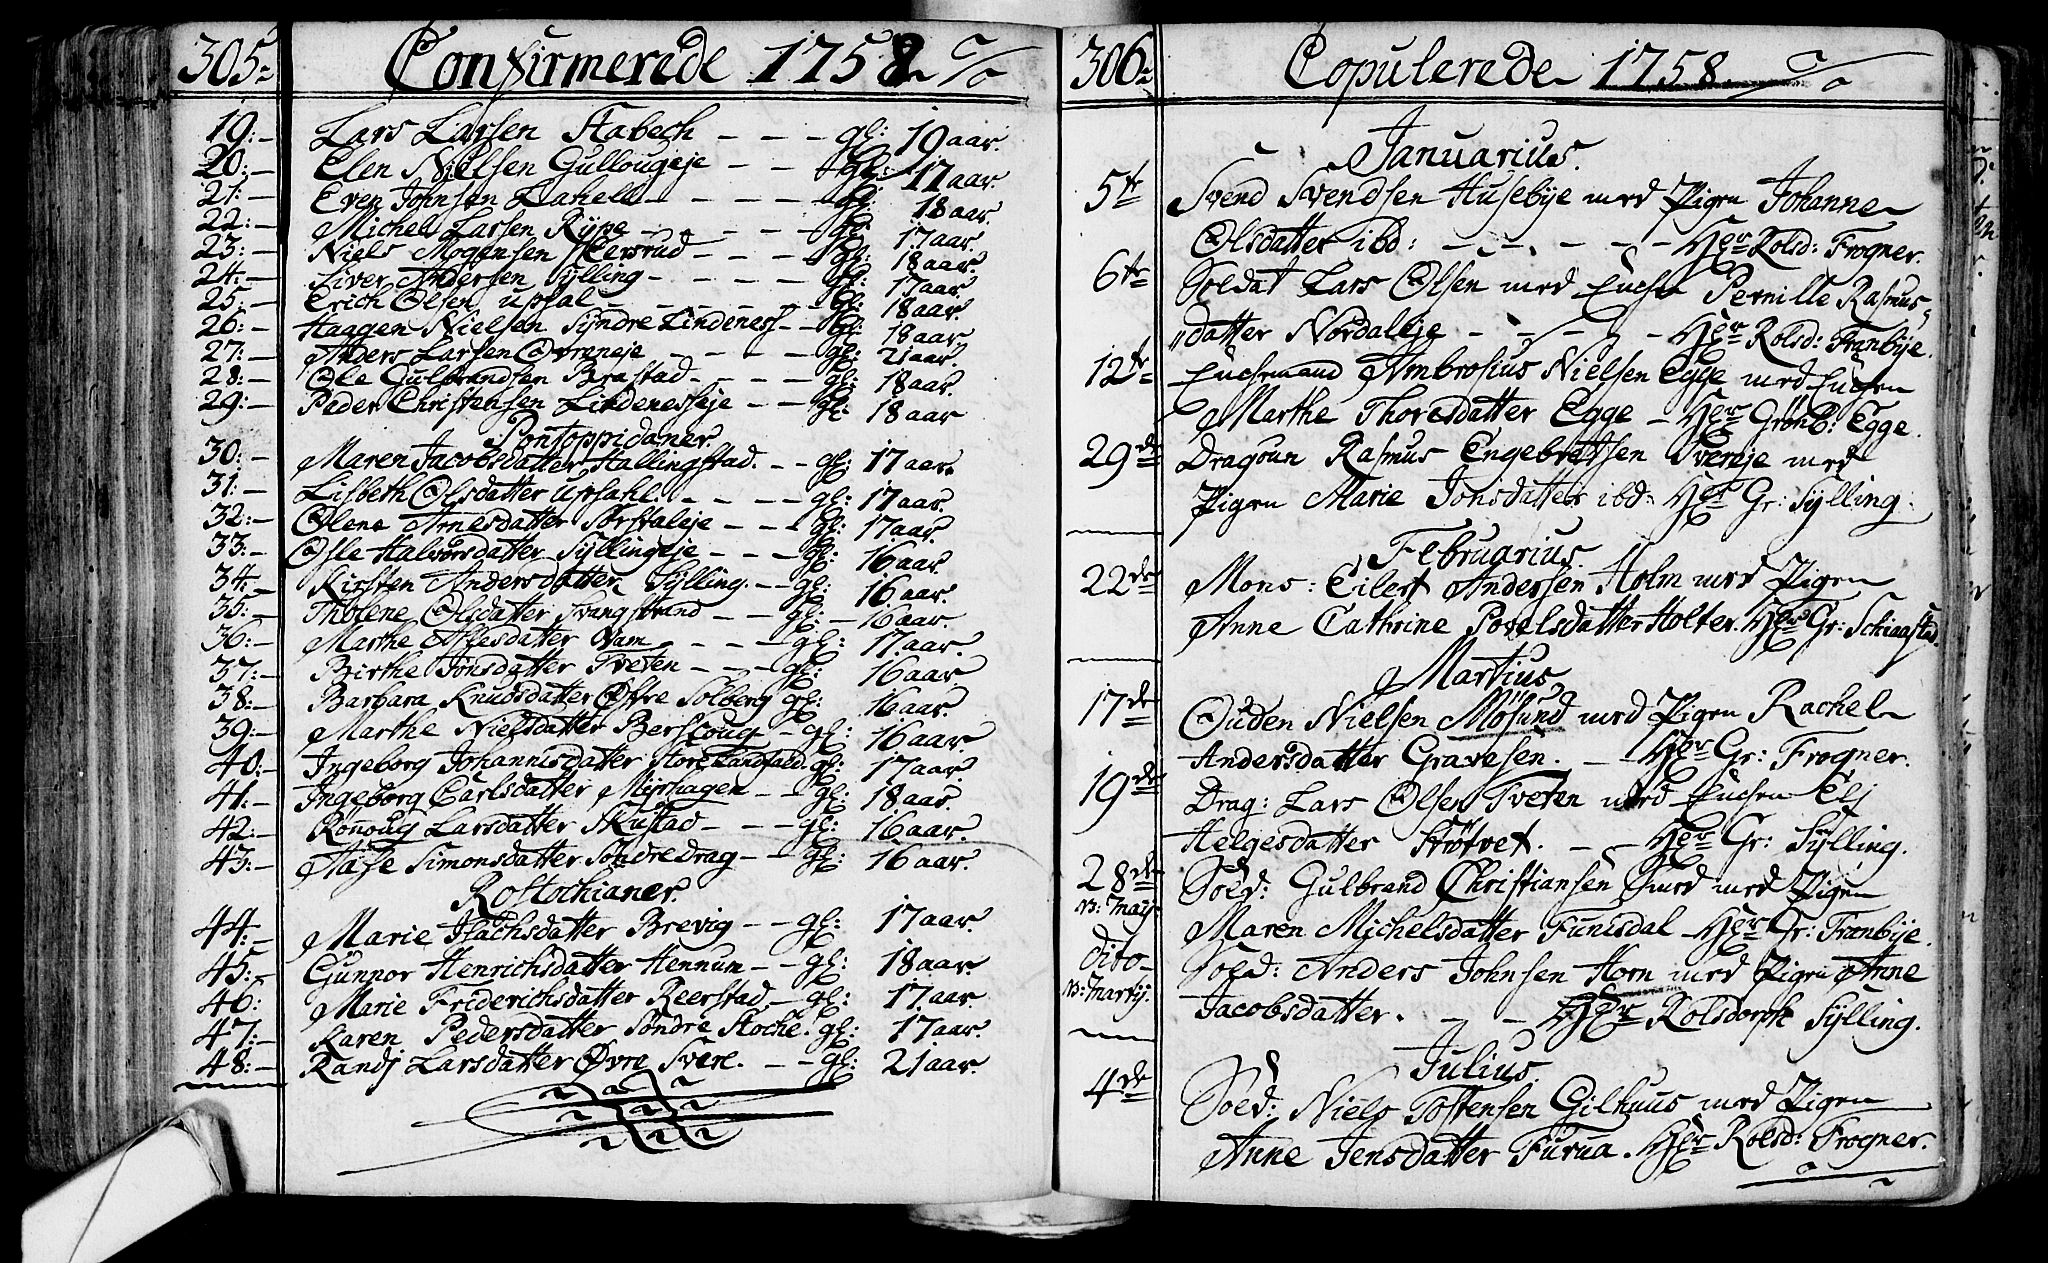 305. Confirmerede 1758
19: Lars Larsen Stabech gl: 19 aar.
20: Elen Nielsen Gullougeje gl: 17 aar.
21: Even Johnsen Lahell gl: 18 aar.
22: Michel Larsen Rype gl: 17 aar.
23: Niels Mogensen gl: 18 aar.
24: Siver Andersen Sylling gl: 17 aar.
25: Erich Olsen upsal gl: 18 aar.
26: Haagen Nielsen Syndre Lindenes gl: 18 aar.
27: Anders Larsen Ovreneje gl: 21 aar.
28: Ole Gulbrandsen Brastad gl: 18 aar.
29: Peder Christensen Lindenesseje gl: 18 aar
Pontoppidaner.
30: Maren Jacobsdatter Hallingstad. gl: 17 aar.
31: Lisbeth Olsdatter upsahl gl: 17 aar.
32: Olene Arnesdatter gl: 17 aar.
33: Halvorsdatter Syllingeje gl: 16 aar.
34: Kirsten Andersdatter Sylling gl: 16 aar.
35: Tholene Olsdatter Svangstrand gl: 16 aar.
36: Marthe Asslesdatter gl: 17. aar.
37: Birthe Jonsdatter Tveten gl: 16 aar.
38: Barbara Knudsdatter Øfre Solberg gl: 16 aar.
39: Marthe Nielsdatter Berscoug gl: 16 aar.
40: Ingeborg Johannisdatter Store Landfald. gl: 17 aar.
41: Ingeborg Carlsdatter Myrhagen gl: 18 aar.
42: Rønoug Larsdatter Skustad gl: 16 aar.
43: Aase Simonsdatter Søndre drag gl: 16 aar.
Rostochianer.
44: Marie Isachsdatter Brevig gl: 17 aar.
45: Gunnor Henrichsdatter Hennum gl: 18 aar.
46: Marie Friderichsdatter Reerstad gl: 17 aar.
47: Karen Pedersdatter Søndre Stoche. gl: 17 aar.
48: Randj Larsdatter Øvre Svere. gl: 21 aar.
306. Copulerede 1758.
Januarius.
5te Svend Svendsen Husebye med Pigen Johanne
Olsdatter ibd: Her Rolsd: Frogner.
6te Soldat Lars Olsen med Enchen Pernille Rasmus
datter Nordaleje Her Rolsd: Tranbye.
12te Enchemand Ambrosius Nielsen Egge med Enchen
Marthe Thoresdatter Egge Her Grønb: Egge.
29de Dragoun Rasmus Engebretsen Svereje med
Pigen Marie Jonsdatter ibd: Her Gr: Sylling.
Februarius.
22de Mons: Eilert Andersen Holm med Pigen
Anne Cathrine Povelsdatter Holter. Her Gr: Schiaasted.
Martius
17de Ouden Nielsen Mösund med Pigen Rachel
Andersdatter Gravesen. Her Gr: Frogner.
19de Drag: Lars Olsen Tveten med Enchen Elj
Helgesdatter Støtvet. Her Gr: Sylling.
28de Sold: Gulbrand Christiansen med Pigen
n: May. Maren Michelsdatter Funisdal Her Gr: Tranbye.
dito Sold: Anders Johnsen Horn med Pigen Anne
n: Martij. Jacobsdatter. Her Rolsdorph Sylling.
Julius
4de Sold: Niels Tostensen Gilhuus med Pigen
Anne Jensdatter Furua. Her Rolsd: Frogner.